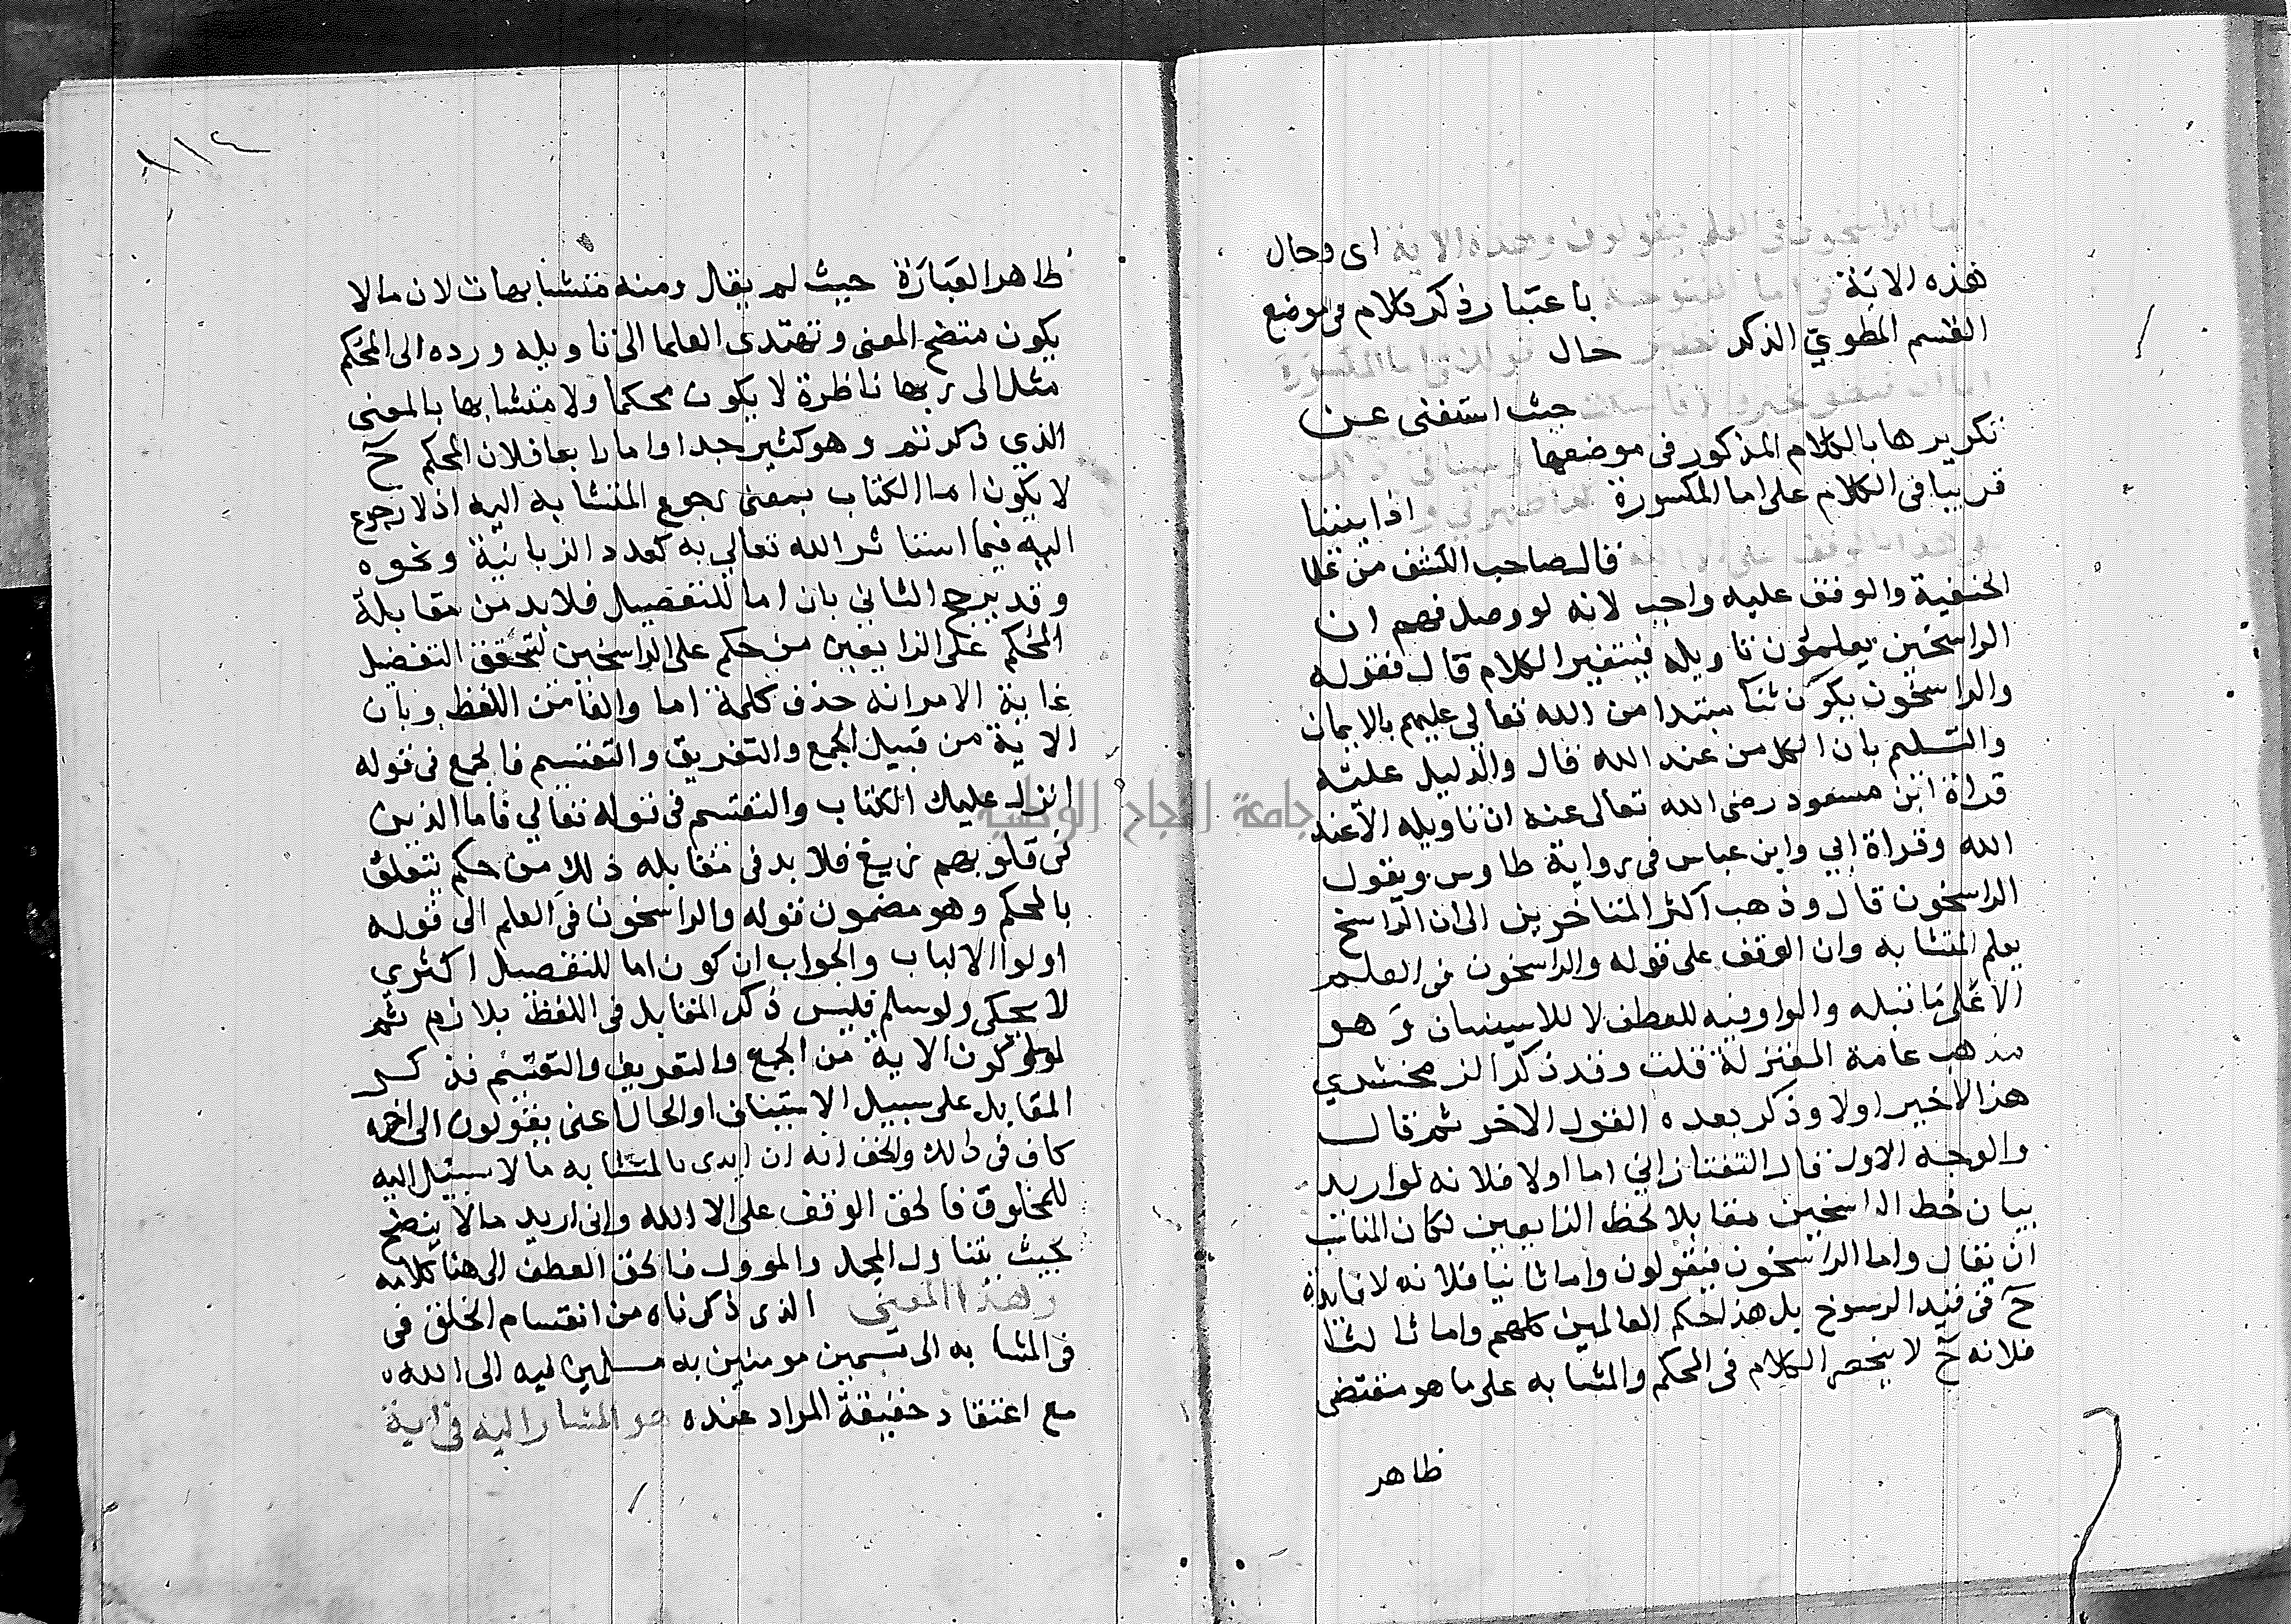 واما الراسخون فى العلم فيقولون وهذه الاية اى وحال
هذه الاية فى اما المفتوحة باعتبار ذكر كلام فى موضع
القسم المطوي الذكر نظير حال قولك فى اما المكسورة
اما ان تنطق بخير والا فاسكت حيث استغنى عن
تكريرها بالكلام المذكور فى موضعها
قريبا فى الكلام على اما المكسورة اذا بيننا
قال صاحب الكشف من علما
الحنفية والوقف عليه واجب لانه لو وصل فهم ان
الراسخين يعلمون تاويله فيتغير الكلام قال فقوله
والراسخون يكون ثنا مبتدا من الله تعالى عليهم بالايمان
والتسليم بان الكل من عند الله قال والدليل عليه
قراة ابن مسعود رضى الله تعالى عنه ان تاويله الا عند
الله وقراة ابي وابن عباس فى رواية طاوس ويقول
الراسخون قال وذهب اكثر المتاخرين الى ان الراسخ
يعلم المتشابه وان الوقف على قوله والراسخون فى العلم
لا على ما قبله والواو فيه للعطف لا للاستيناف وهو
مذهب عامة المعتزلة قلت وقد ذكر الزمخشري
هذا الاخير اولا وذكر بعده القول الاخر ثم قال
والوجه الاول قال التفتازاني اما اولا فلانه لو اريد
بيان حظ الراسخين مقابلا لحظ الزايغين لكان المناسب
ان يقال واما الراسخون فيقولون واما ثانيا فلانه لا فايدة
ح فى قيد الرسوخ بل هذا حكم العالمين كلهم واما ثالثا
فلانه ح لا ينحصر الكلام فى المحكم والمتشابه على ما هو مقتضى
ظاهر
١١٢
ظاهر العبارة حيث لم يقل ومنه متشابهات لان ما لا
يكون متضح المعنى وتهتدى العلما الى تاويله ورده الى المحكم
مثل الى ربها ناظرة لا يكون محكما ولا متشابها بالمعنى
الذي ذكرتم وهو كثير جدا واما رابعا فلان المحكم ح
لا يكون ام الكتاب بمعنى رجوع المتشابه اليه اذ لا رجوع
اليه فيما استاثر الله تعالى به كعدد الزبانية ونحوه
وقد يرجح الثاني بان اما للتفصيل فلا بد من مقابلة
المحكم على الزايغين من حكم على الراسخين لتحقق التفصيل
غاية الامر انه حذف كلمة اما والفا من اللفظ وبان
الاية من قبيل الجمع والتفريق والتقسيم فالجمع فى قوله
انزل عليك الكتاب والتقسيم فى قوله تعالي فاما الذين
فى قلوبهم زيغ فلا بد فى مقابله ذلك من حكم يتعلق
بالمحكم وهو مضمون قوله والراسخون فى العلم الى قوله
اولوا الالباب والجواب ان كون اما للتفصيل اكثري
لا كلى ولو سلم فليس ذكر المقابل فى اللفظ بلازم ثم
لو سلم كون الاية من الجمع والتفريق والتقسيم فذكر
المقابل على سبيل الاستيناف او الحال اعنى يقولون الى اخره
كاف فى ذلك والحق انه ان اريد بالمتشابه ما لا سبيل اليه
للمخلوق فالحق الوقف على الا الله وان اريد ما لا يتضح
بحيث يتناول المجمل والموول فالحق العطف الى هنا كلامه
وهذا المعنى الذى ذكرناه من انقسام الخلق فى
فى المتشابه الى قسمين مومنين به مسلمين ليه الى الله
مع اعتقاد حقيقة المراد عنده هو المشار اليه فى اية
جامعة النجاح الوطنية